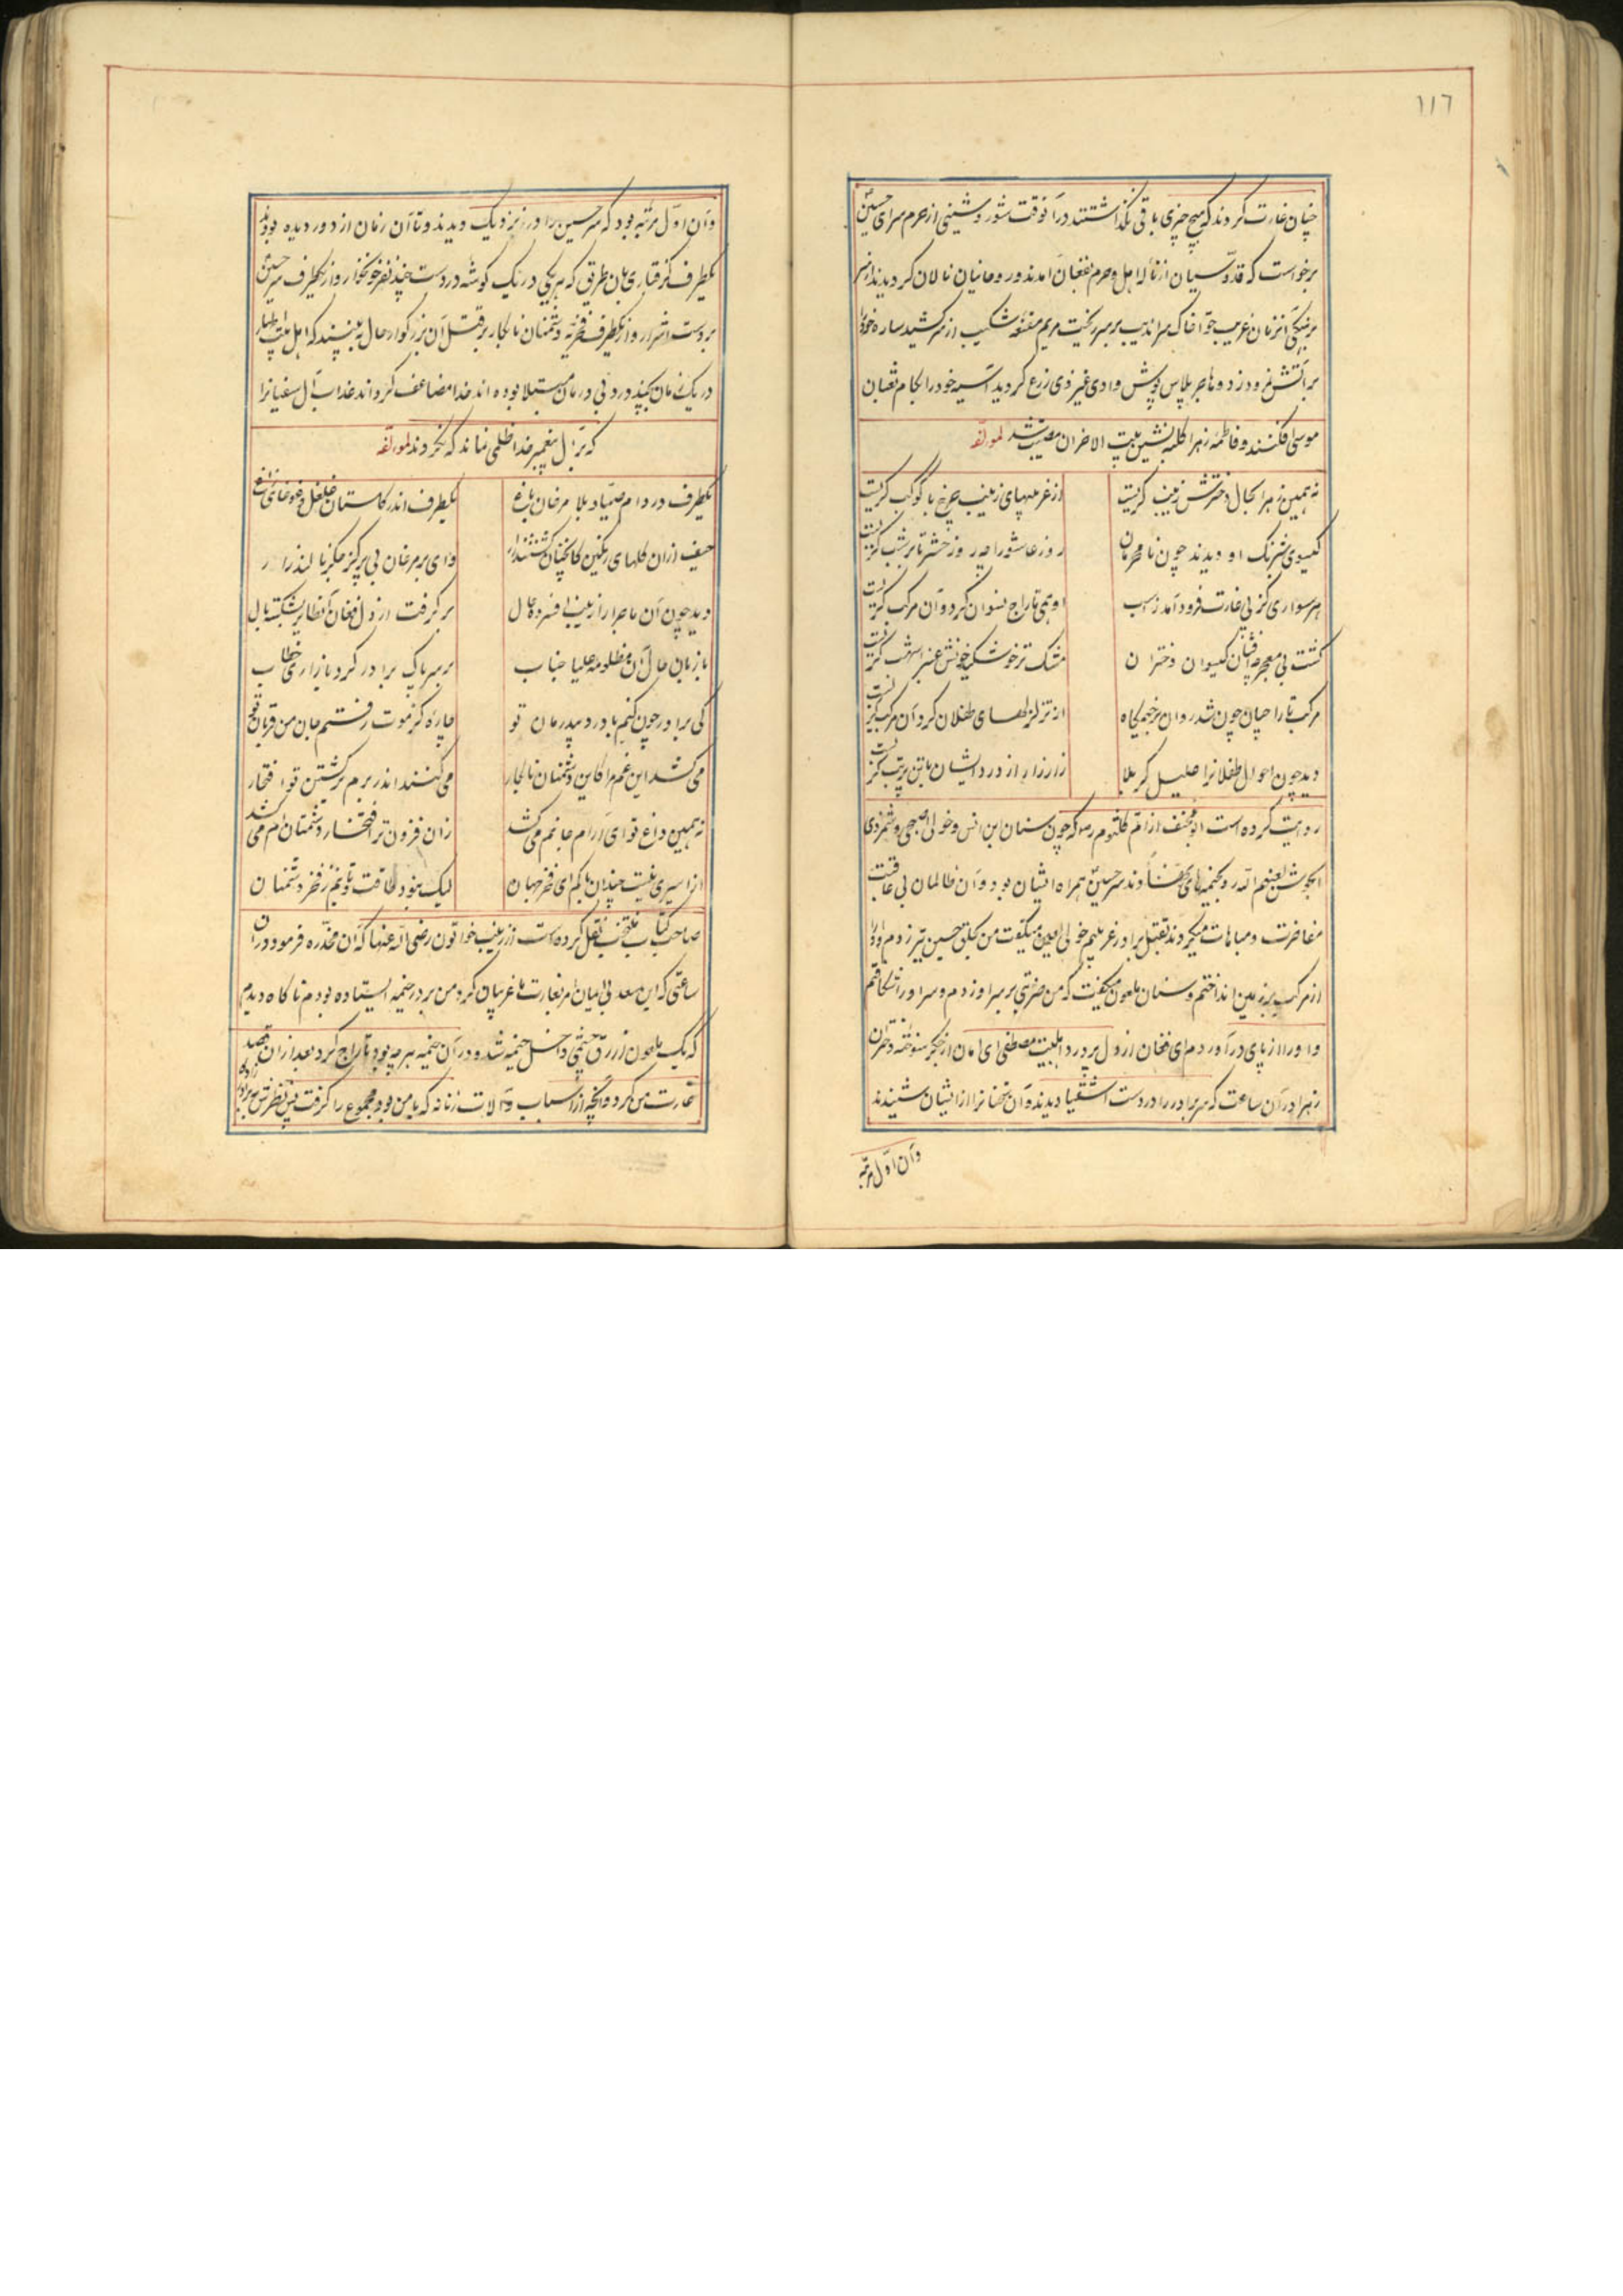 ١١٦
چنان غارت کردند که هیچ چیزی باقی نگذاشتند در آنوقت شور و شینی از حرم سرای حسین
برخواست که قدوسیان از ناله اهل حرم بفغان آمدند و روحانیان نالان کردیدند از سر
بر آتش نمرود زد و هاجر پلاس پوش وادی غیر ذی زرع کردید آسیه خود را بکام ثعبان
موسی افکند و فاطمه زهرا کلبه نشین بیت الاحزان مصیبت شد لمؤلفه
نه همین زهرا بحال دخترش زینب کریست
از غریبیهای زینب چرخ با کوکب کریست
کیسوی شبرنک او دیدند چون نامحرمان
روز عاشورا چه روز حشر تا بر شب کریست
هر سواری کز پی غارت فرود آمد ز اسب
او همی تاراج نسوان کرد و آن مرکب کریست
کشت بی معجر کیسوان دختران
مشک تر خوشکید خونش عنبر اشهب کریست
از تزلزلهای طفلان کرد آن مرکب کریست
دید چون احوال طفلانرا علیل کربلا
زار زار از درد ایشان با تن پر تب کریست
روایت کرده است ابومخنف از ام کلثوم که چون سنان ابن انس و خولی اصبحی و شمر ذی
الجوشن لعنهم الله رو بخیمه های نهادند سر حسین همراه ایشان بود و آن ظالمان بی عاقبت
مفاخرت و مباهات میکردند بقتل برادر غریبم خولی لعین میکفت من بحلق حسین تیر زدم و او را
از مرکب بزمین انداختم و سنان ملعون میکفت که من ضربتی بر سر او زدم و سر او را شکافتم
و او را از پای درآوردم ای فغان از دل پر درد اهلبیت مصطفی ای امان از جکر سوخته دختران
زهرا در آن ساعت که سر برادر را در دست اشقیا دیدند و آن سخنانرا از ایشان شنیدند
وآن اول مرتبه
وآن اول مرتبه بود که سر حسین را از نزدیک دیدند و تا آن زمان از دور دیده بودند
یکطرف کرفتاری بآن طریق که هر یکی در یک کوشه در دست چند نفر خونخوار و از یکطرف سر حسین
بر دست اشرار و از یکطرف فخریه دشمنان نابکار بر قتل آن بزرکوار حال به بینید که اهل بیت اطهار
در یک زمان بچند درد بی درمان مبتلا بوده اند خدا مضاعف کرداند عذاب آل سفیانرا
که بر آل پیغمبر خدا ظلمی نماند که نکردند لمؤلفه
یکطرف در دام صیاد بلا مرغان باغ
یکطرف اندر کلستان غلغل و غوغای زاغ
حیف از آن کلهای رنکین کانچنان کشتند
وای بر مرغان بی پر کز جکر نالند زار
دید چون آن ماجرا را زینب افسرده حال
بر کرفت از دل فغان آنطایر بشکسته بال
با زبان حال آن مظلومه علیا جناب
بر سر پاک برادر کرد با زاری خطاب
کی برادر چون کنم با درد بیدرمان تو
چاره کز موت رفتم جان من قربان تو
می کشد این غم مرا کاین دشمنان نابکار
می کنند اندر برم بر کشتن تو افتخار
نه همین داغ تو ای آرام جانم می کشد
زان فزون تر افتخار دشمنان ام می کشد
از اسیری نیست چندان باکم ای فخر جهان
لیک نبود طاقت و تابم ز فخر دشمنان
صاحب کتاب منتخب نقل کرده است از زینب خواتون رضی الله عنها که آن مخدره فرمود در آن
ساعتی که ابن سعد بی ایمان امر بغارت ما غریبان کرد من بر در خیمه ایستاده بودم ناکاه دیدم
که یک ملعون ازرق چشمی داخل خیمه شد و در آن خیمه هر چه بود تاراج کرد بعد از آن قصد
غارت من کرد و آنچه از اسباب و آلات زنانه که با من بود مجموع را کرفت پس نظرش